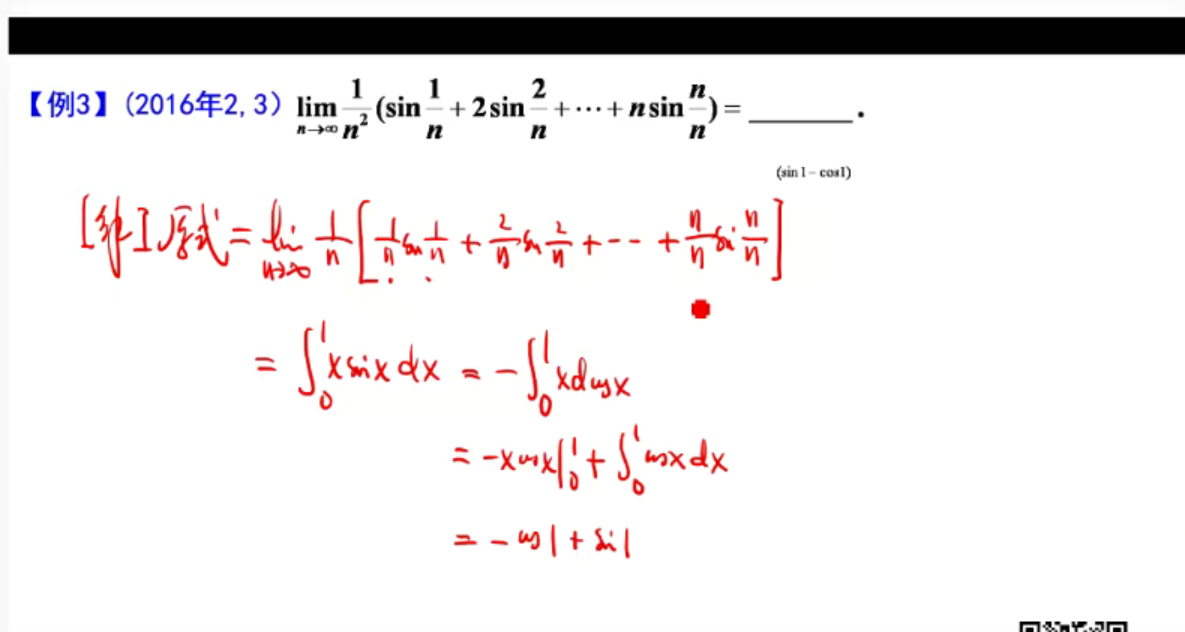 【例3】(2016年2,3) lim n→∞ 1/n² (sin 1/n + 2sin 2/n + ⋯ + n sin n/n) = ______.
(sin1 − cos1)
[解]原式 = lim n→∞ 1/n [1/n sin 1/n + 2/n sin 2/n + ⋯ + n/n sin n/n]
= ∫₀¹ x sinx dx = −∫₀¹ x dcosx
= −xcosx|₀¹ + ∫₀¹ cosx dx
= −cos1 + sin1